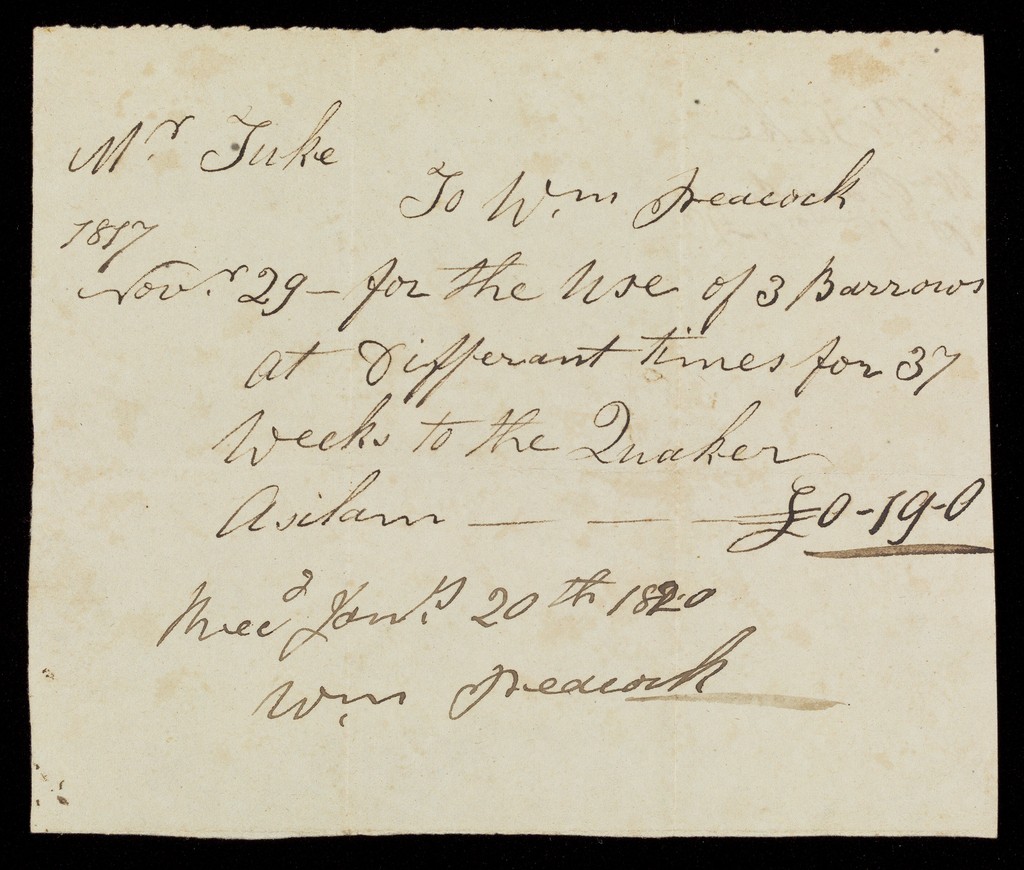 Mr Tuke
To Wm Peacock
1817
Novr. 29 – for the Use of 3 Barrows
at Differant times for 37
Weeks to the Quaker
Asilam — — — £0-19-0
Recd Jany. 20th 1820
Wm Peacock